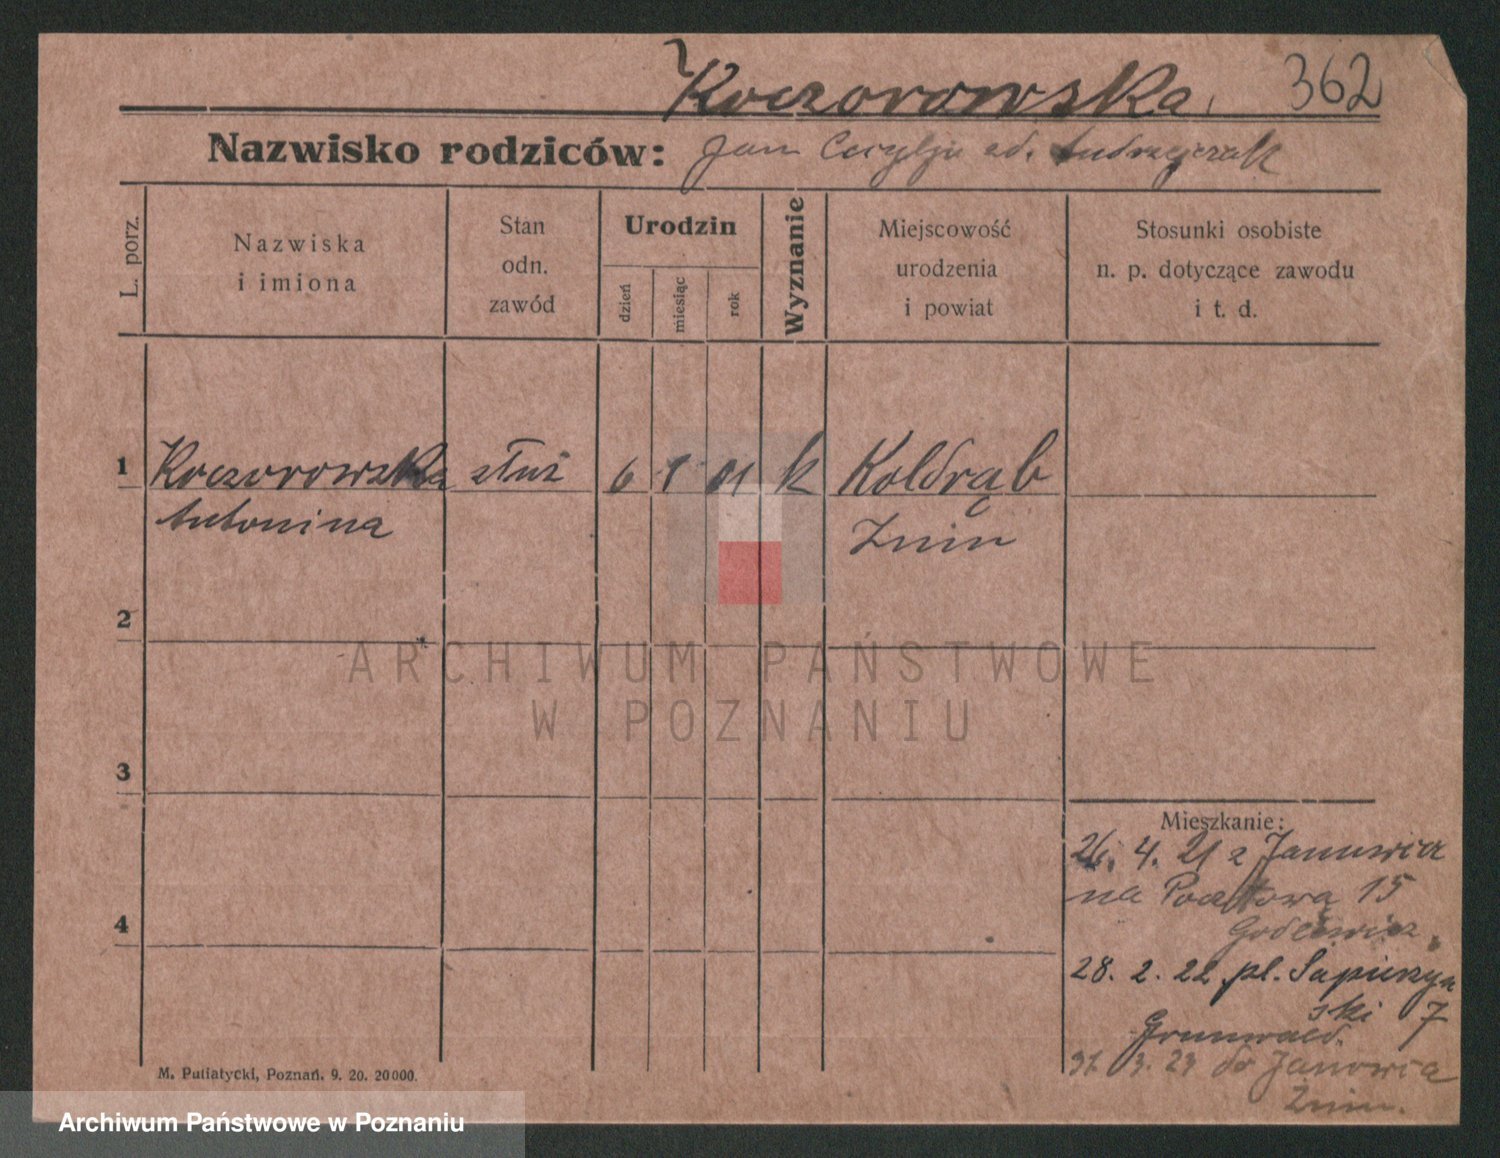 Koczorowska 362
Nazwisko rodziców: Jan Cecylja zd. Andrzejczak
L. porz.
Nazwiska
i imiona
Stan
odn.
zawód
Urodzin
dzień
miesiąc
rok
Wyznanie
Miejscowość
urodzenia
i powiat
Stosunki osobiste
n. p. dotyczące zawodu
i t. d.
1 Koczorowska służ 6 1 01 k Kołdrąb
Antonina Żnin
2
ARCHIWUM PAŃSTWOWE
W POZNANIU
3
Mieszkanie:
26. 4. 21 z Janowica
na Pocztową 15
4
28. 2. 22 pl. Sapieżyń
ski 7
Grunwald.
31 3. 23 do Janowca
Żnin.
M. Putiatycki, Poznań. 9. 20. 20000.
Archiwum Państwowe w Poznaniu